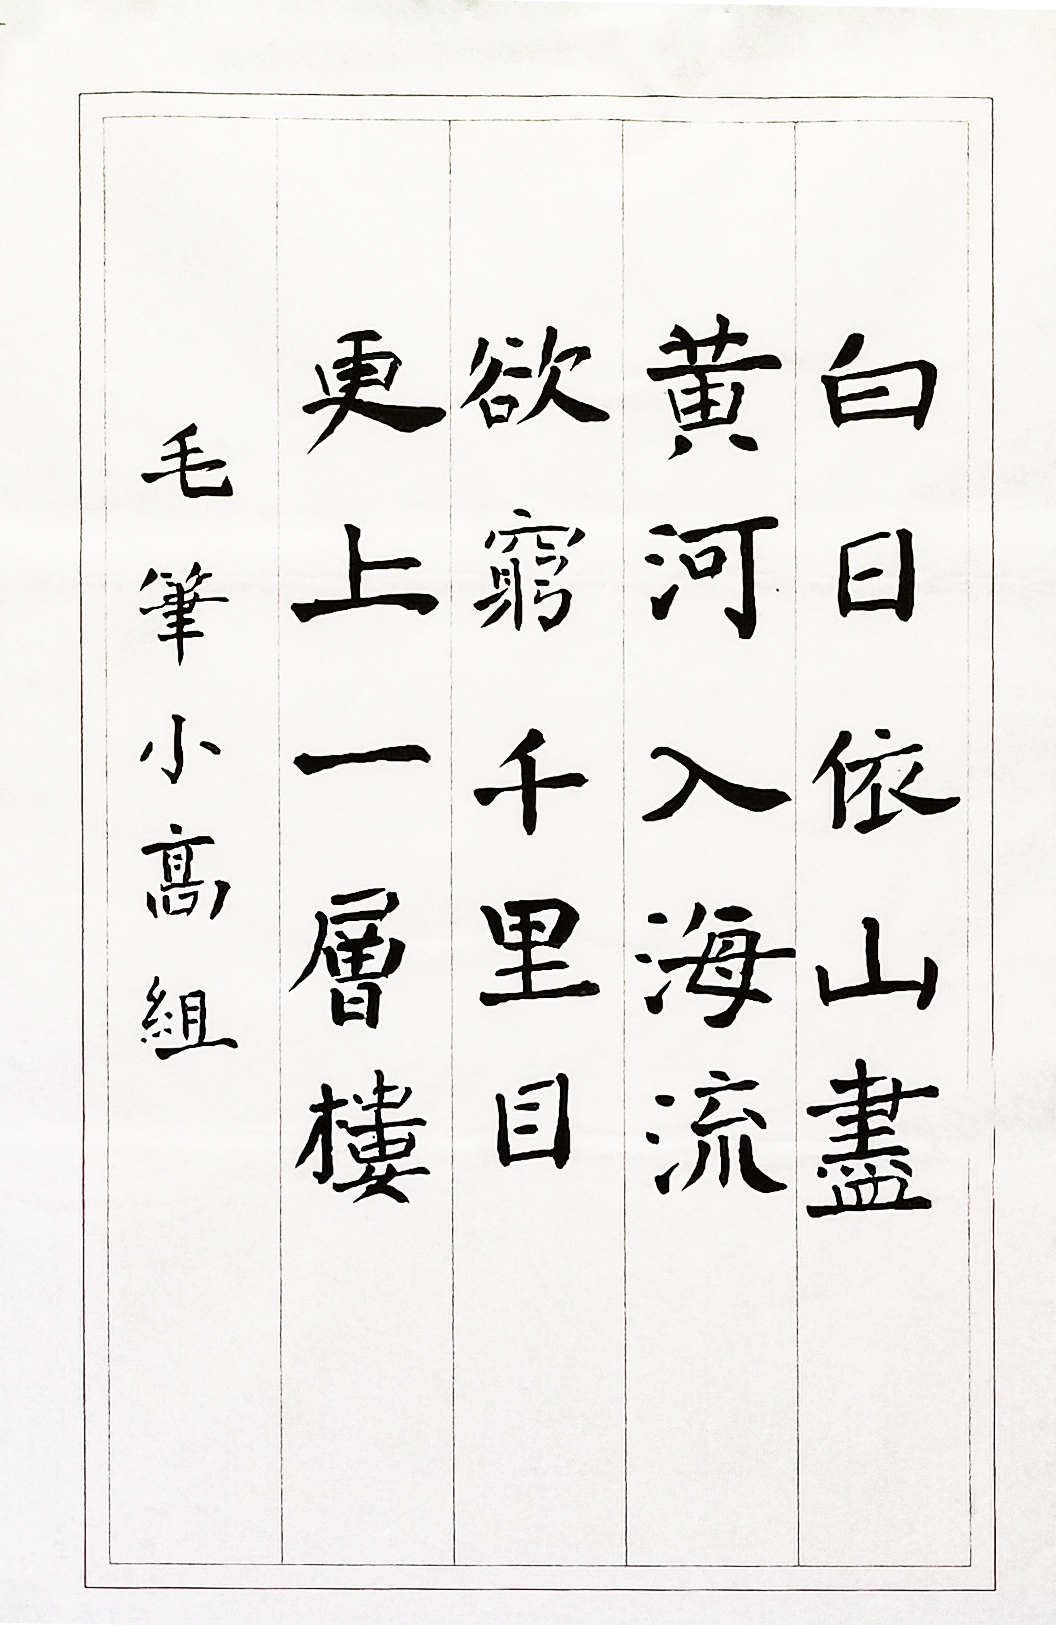 白日依山盡
黃河入海流
欲窮千里目
更上一層樓
毛筆小高組